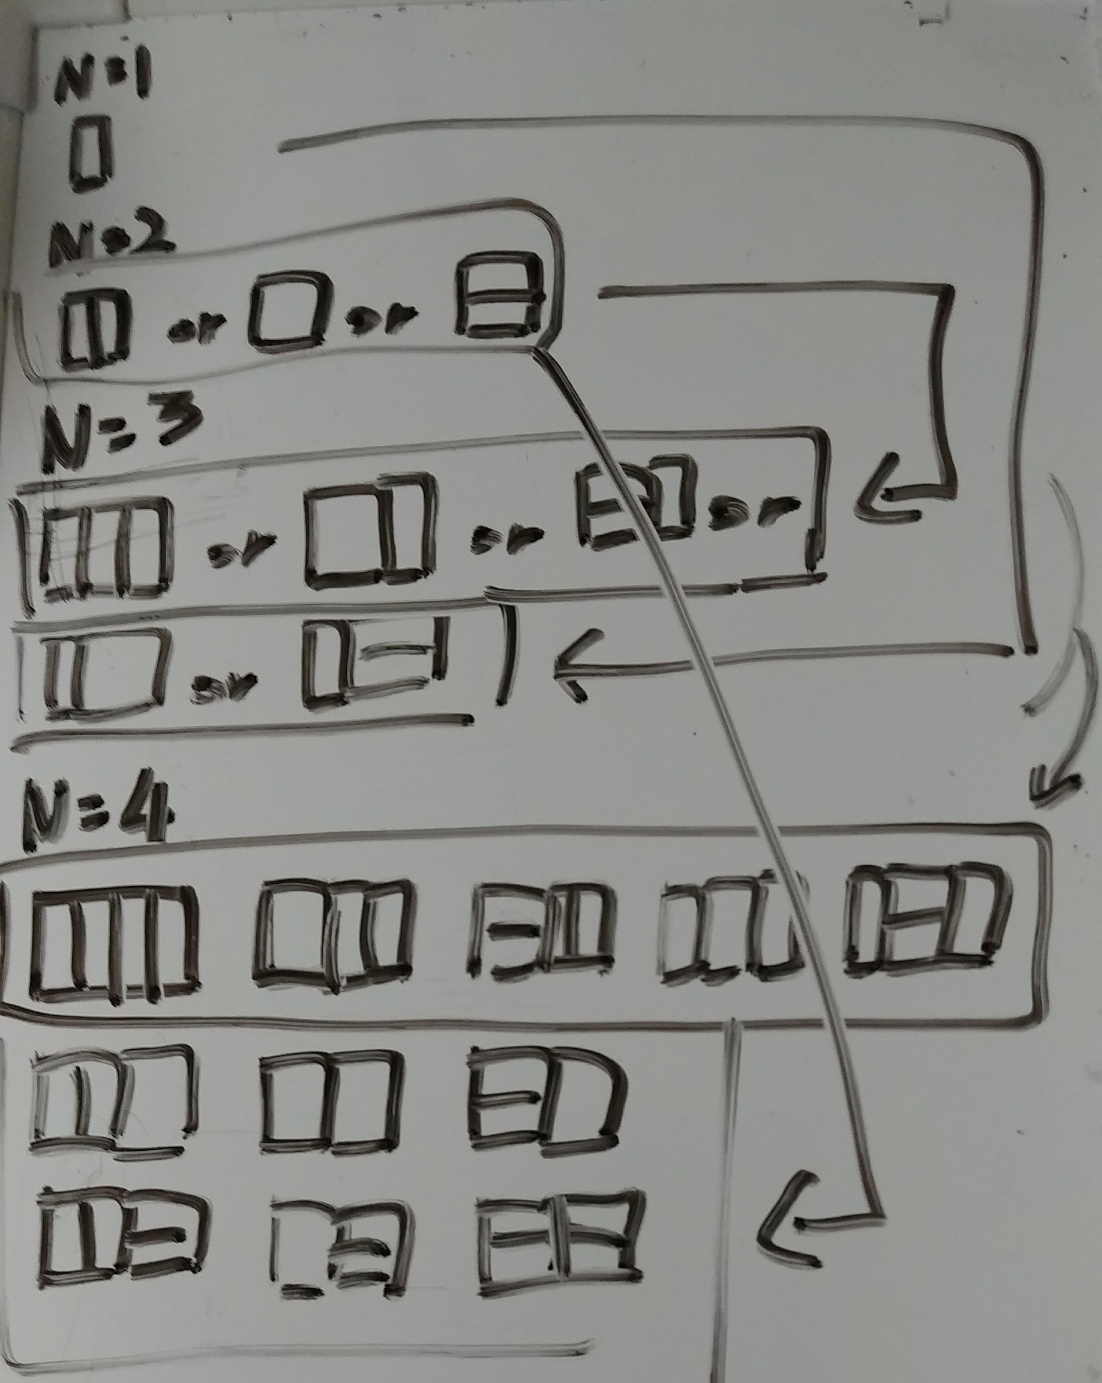 N=1
N=2
or or
N=3
or or or
or
N=4